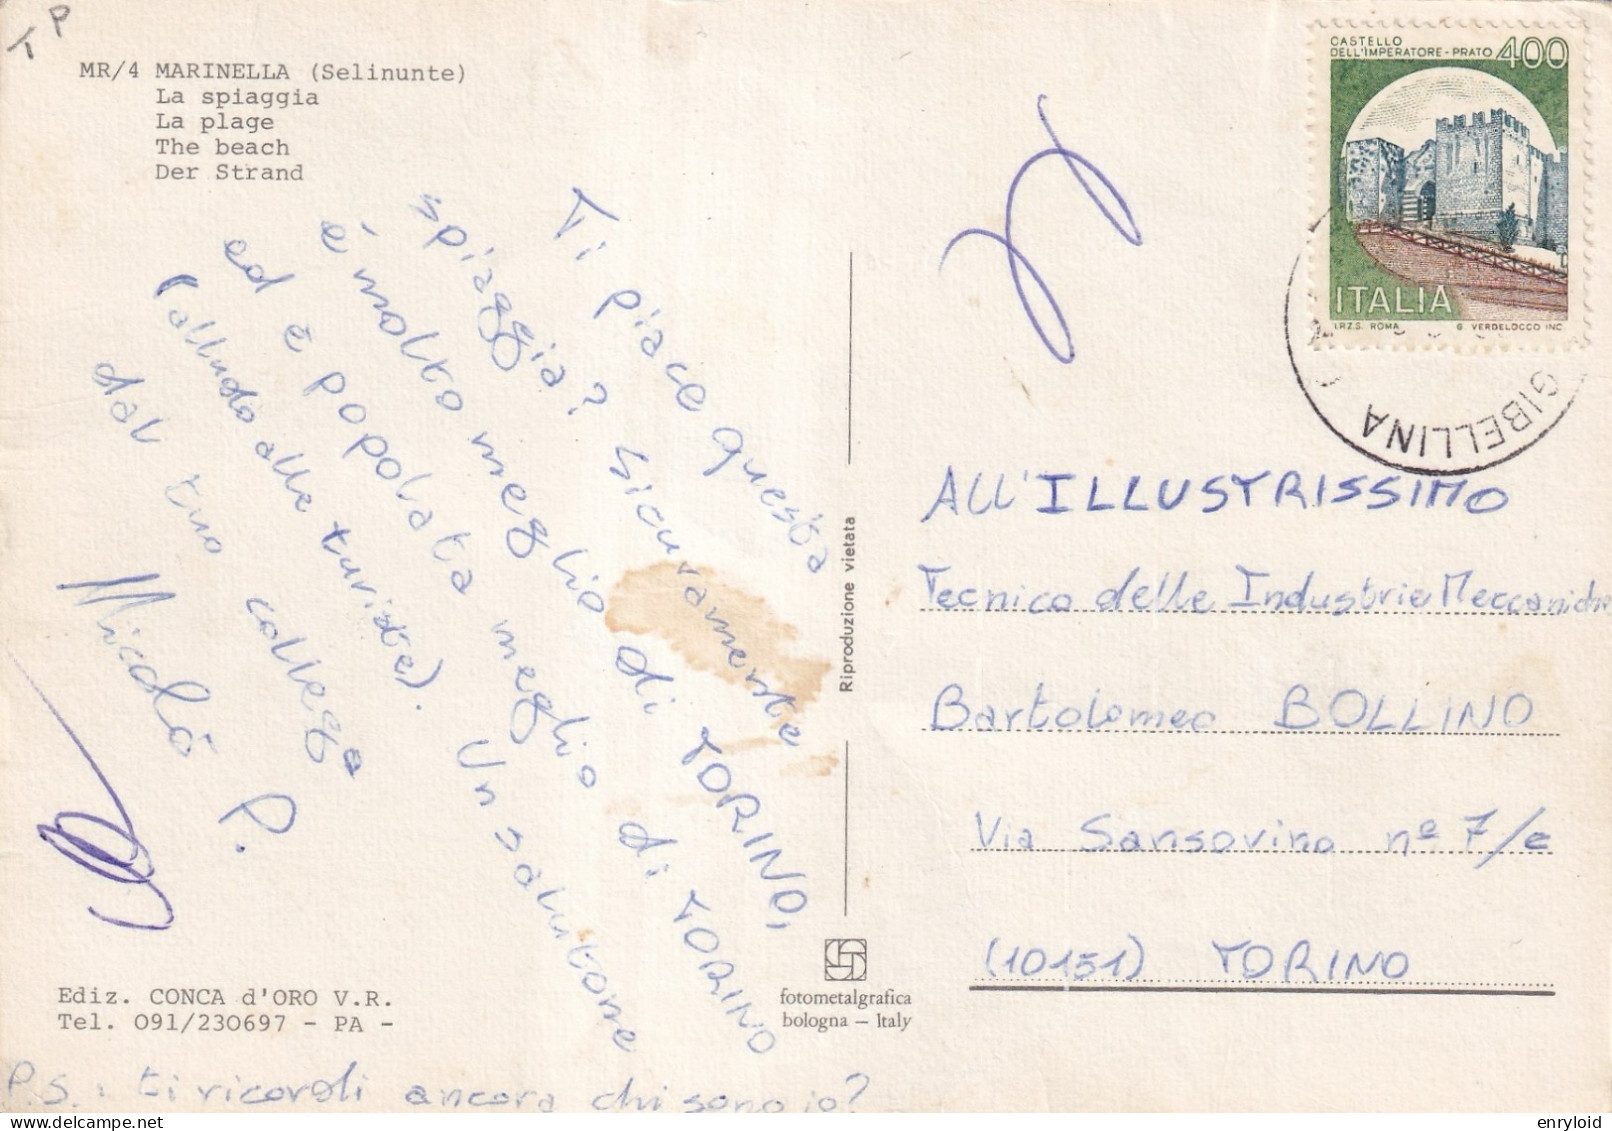 TP
MR/4 MARINELLA (Selinunte)
La spiaggia
La plage
The beach
Der Strand
Ti piace questa
spiaggia? Sicuramente
é molto meglio di TORINO,
ed è popolata meglio di TORINO
(alludo alle turiste). Un salutone
dal tuo collega
Nicolò P.
P.S.: ti ricordi ancora chi sono io?
Ediz. CONCA d'ORO V.R.
Tel. 091/230697 - PA -
Riproduzione vietata
fotometalgrafica
bologna – Italy
CASTELLO
DELL'IMPERATORE - PRATO 400
ITALIA
I.P.Z.S. ROMA G. VERDELOCCO INC.
GIBELLINA
ALL'ILLUSTRISSIMO
Tecnico delle Industrie Meccaniche
Bartolomeo BOLLINO
Via Sansovino nº 7/e
(10151) TORINO
enryloid @ delcampe.net